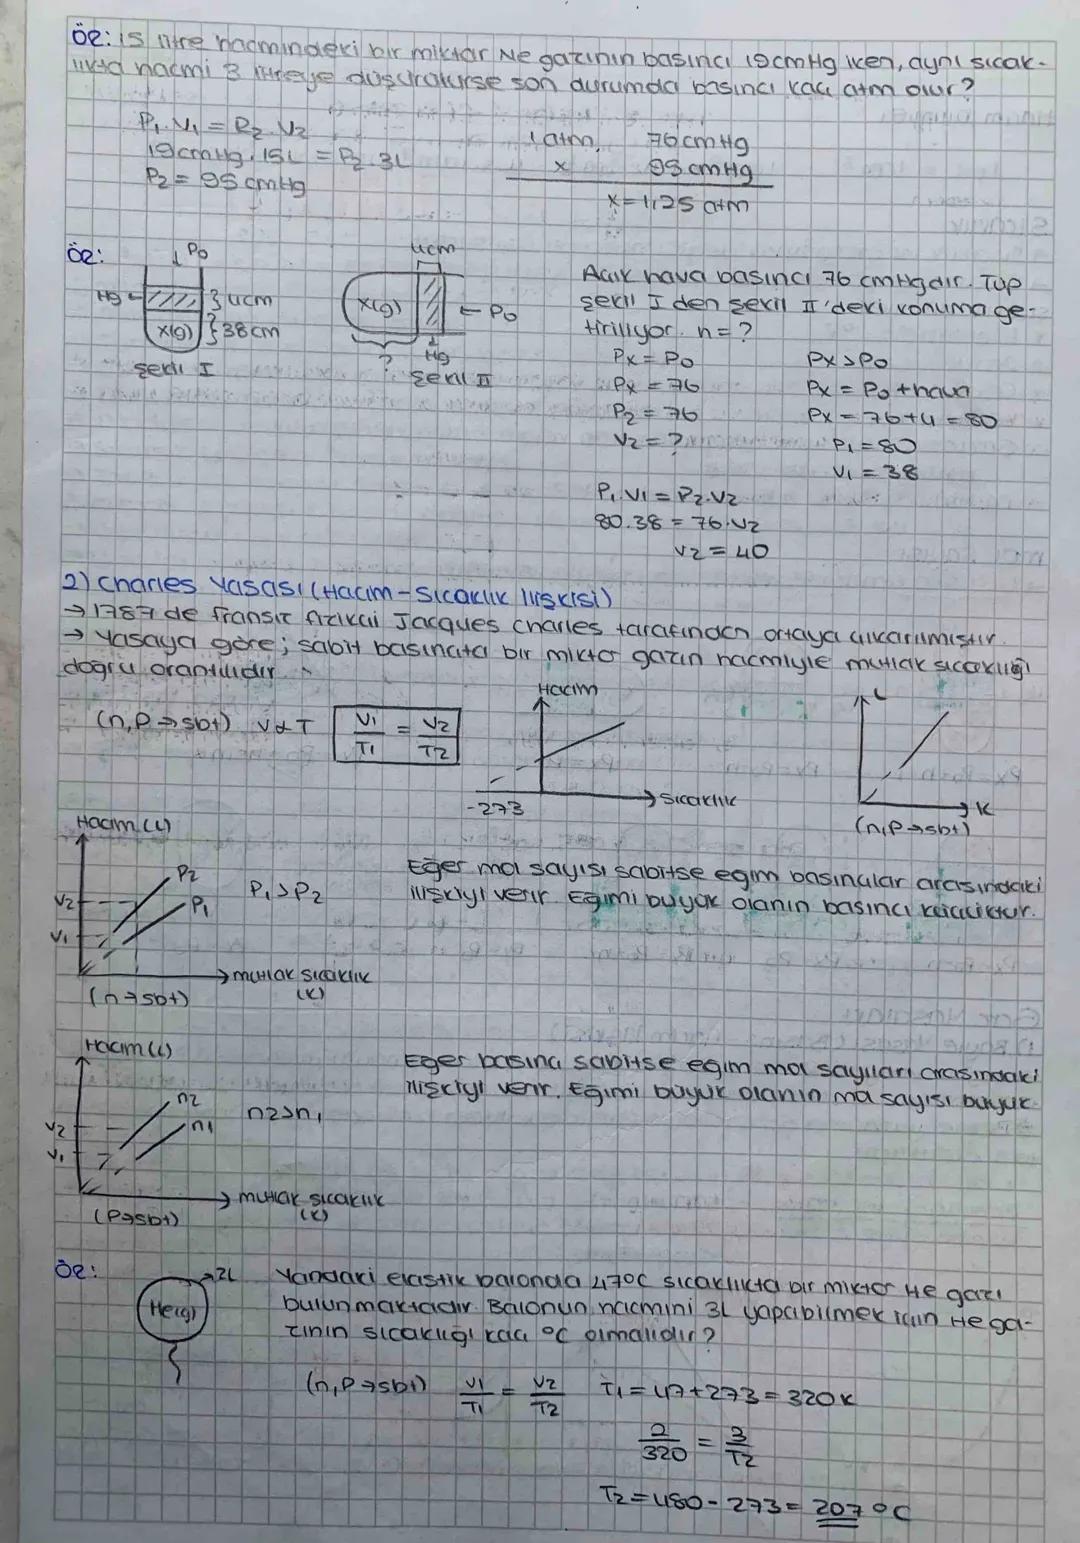 Ör: 15 litre hacmindeki bir miktar Ne gazının basıncı 19cmHg iken, aynı sıcak-
lıkta hacmi 3 litreye düşürülürse son durumda basıncı kaç atm olur?
P₁.V₁ = P₂.V₂
19cmHg.15L = P₂.3L
P₂ = 95 cmHg
1 atm 76cmHg
x 95cmHg
x=1,25 atm
Ör:
↓P₀
Hg
}4cm
X(g) }38cm
Şekil I
4cm
X(g)
← P₀
?
Hg
Şekil II
Açık hava basıncı 76 cmHgdır. Tüp
şekil I den şekil II'deki konuma ge-
tiriliyor. h=?
Px = P₀
Px = 76
P₂ = 76
V₂ = ?
Px>P₀
Px = P₀+hava
Px = 76+4 = 80
P₁ = 80
V₁ = 38
P₁.V₁ = P₂.V₂
80.38 = 76.V₂
V₂ = 40
2) Charles Yasası (Hacim-Sıcaklık İlişkisi)
→ 1787 de fransız fizikçi Jacques Charles tarafından ortaya çıkarılmıştır.
→ Yasaya göre; sabit basınçta bir miktar gazın hacmiyle mutlak sıcaklığı
doğru orantılıdır.
(n,P→sbt) V∝T V₁/T₁ = V₂/T₂
Hacim
-273
Sıcaklık
L
K
(n,P→sbt)
Hacim (L)
P₂
P₁
V₂
V₁
P₁>P₂
Mutlak Sıcaklık
(K)
(n→sbt)
Eğer mol sayısı sabitse eğim basınçlar arasındaki
ilişkiyi verir. Eğimi büyük olanın basıncı küçüktür.
Hacim (L)
n₂
n₁
V₂
V₁
n₂>n₁
Mutlak Sıcaklık
(K)
(P→sbt)
Eğer basınç sabitse eğim mol sayıları arasındaki
ilişkiyi verir. Eğimi büyük olanın mol sayısı büyük.
Ör:
2L
He(g)
Yandaki elastik balonda 47°C sıcaklıkta bir miktar He gazı
bulunmaktadır. Balonun hacmini 3L yapabilmek için He ga-
zının sıcaklığı kaç °C olmalıdır?
(n,P→sbt) V₁/T₁ = V₂/T₂ T₁=47+273=320K
2/320 = 3/T₂
T₂=480-273=207 °C